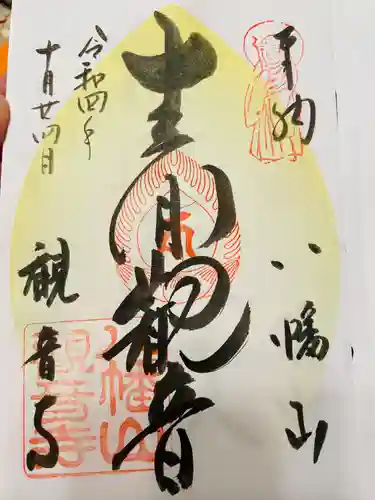 奉納
八幡山
観音
令和四年
十月廿四日
観音寺
八幡山
観音寺